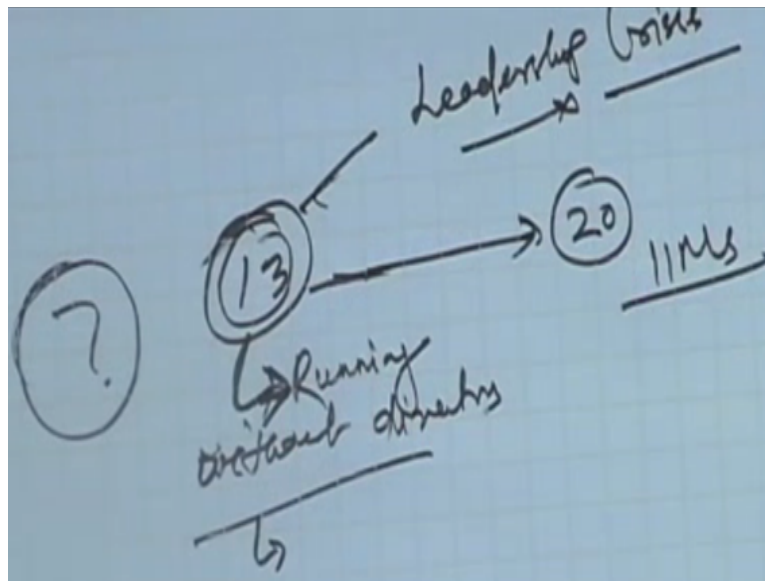 Leadership Crisis
20
13
IIMs
?
Running
without directors